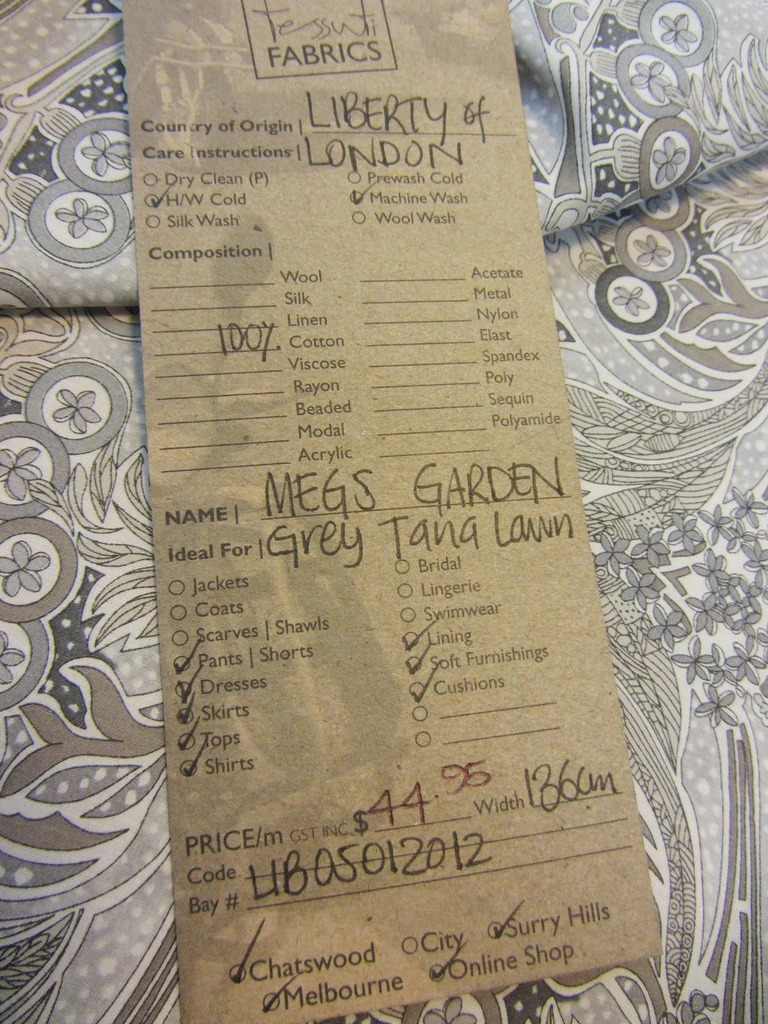 Tessuti
FABRICS
Country of Origin | LIBERTY of
Care Instructions | LONDON
Dry Clean (P) Prewash Cold
H/W Cold Machine Wash
Silk Wash Wool Wash
Composition |
Wool Acetate
Silk Metal
Linen Nylon
100% Cotton Elast
Viscose Spandex
Rayon Poly
Beaded Sequin
Modal Polyamide
Acrylic
NAME | MEGS GARDEN
Ideal For | Grey Tana Lawn
Jackets Bridal
Coats Lingerie
Scarves | Shawls Swimwear
Pants | Shorts Lining
Dresses Soft Furnishings
Skirts Cushions
Tops
Shirts
PRICE/m GST INC $44.95 Width 136cm
Code LIB05012012
Bay #
Chatswood City Surry Hills
Melbourne Online Shop